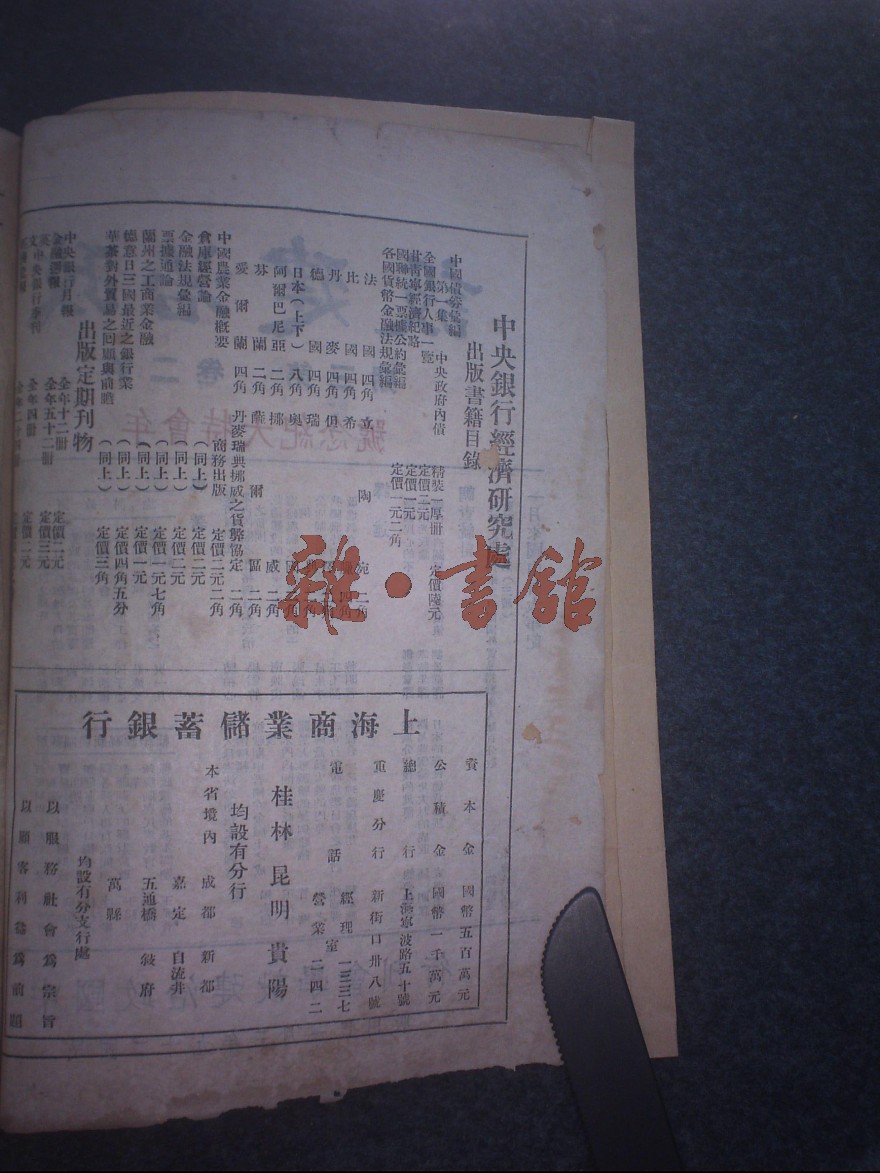 中央銀行經濟研究處
出版書籍目錄
中國債券彙編
第一集 中央政府內債 精裝一厚冊 定價陸元
全國銀行人事一覽 定價二元
甘青寧經濟紀略 定價一元
國聯統一票據公約彙編 定價一元二角
各國貨幣金融法規彙編
法 國 四角 立 陶 宛 二角
比 國 四角 希 四角
丹 麥 四角 但 二角
德 國 四角 瑞
日本(上下) 八角 奧 國 二角
阿爾巴尼亞 二角 挪 威 二角
芬 蘭 二角 薩 爾 區 二角
愛 爾 蘭 四角 丹麥瑞典挪威之貨幣協定 二角
中國農業金融概要 商務出版 定價二元二角
倉庫經營論 (同上) 定價二元
金融法規彙編 (同上) 定價二元
票據通論 (同上) 定價一元七角
蘭州之工商業金融 (同上) 定價一元
德意日三國最近之銀行業 (同上) 定價四角五分
華茶對外貿易之回顧與前瞻 (同上) 定價三角
出版定期刊物
中央銀行月報 全年十二冊 定價二元
金融週報 全年五十二冊 定價三元
英文中央銀行季刊 全年四冊 定價二元
上海商業儲蓄銀行
資本金 國幣五百萬元
公積金 國幣一千萬元
總行 上海寧波路五十號
重慶分行 新街口卅八號
電話 經理室 一三三七
營業室 二四二
桂林 昆明 貴陽
均設有分行
本省境內 成都 新都
嘉定 自流井
五通橋 敍府
萬縣
均設有分支行處
以服務社會為宗旨
以顧客利益為前題
雜·書館